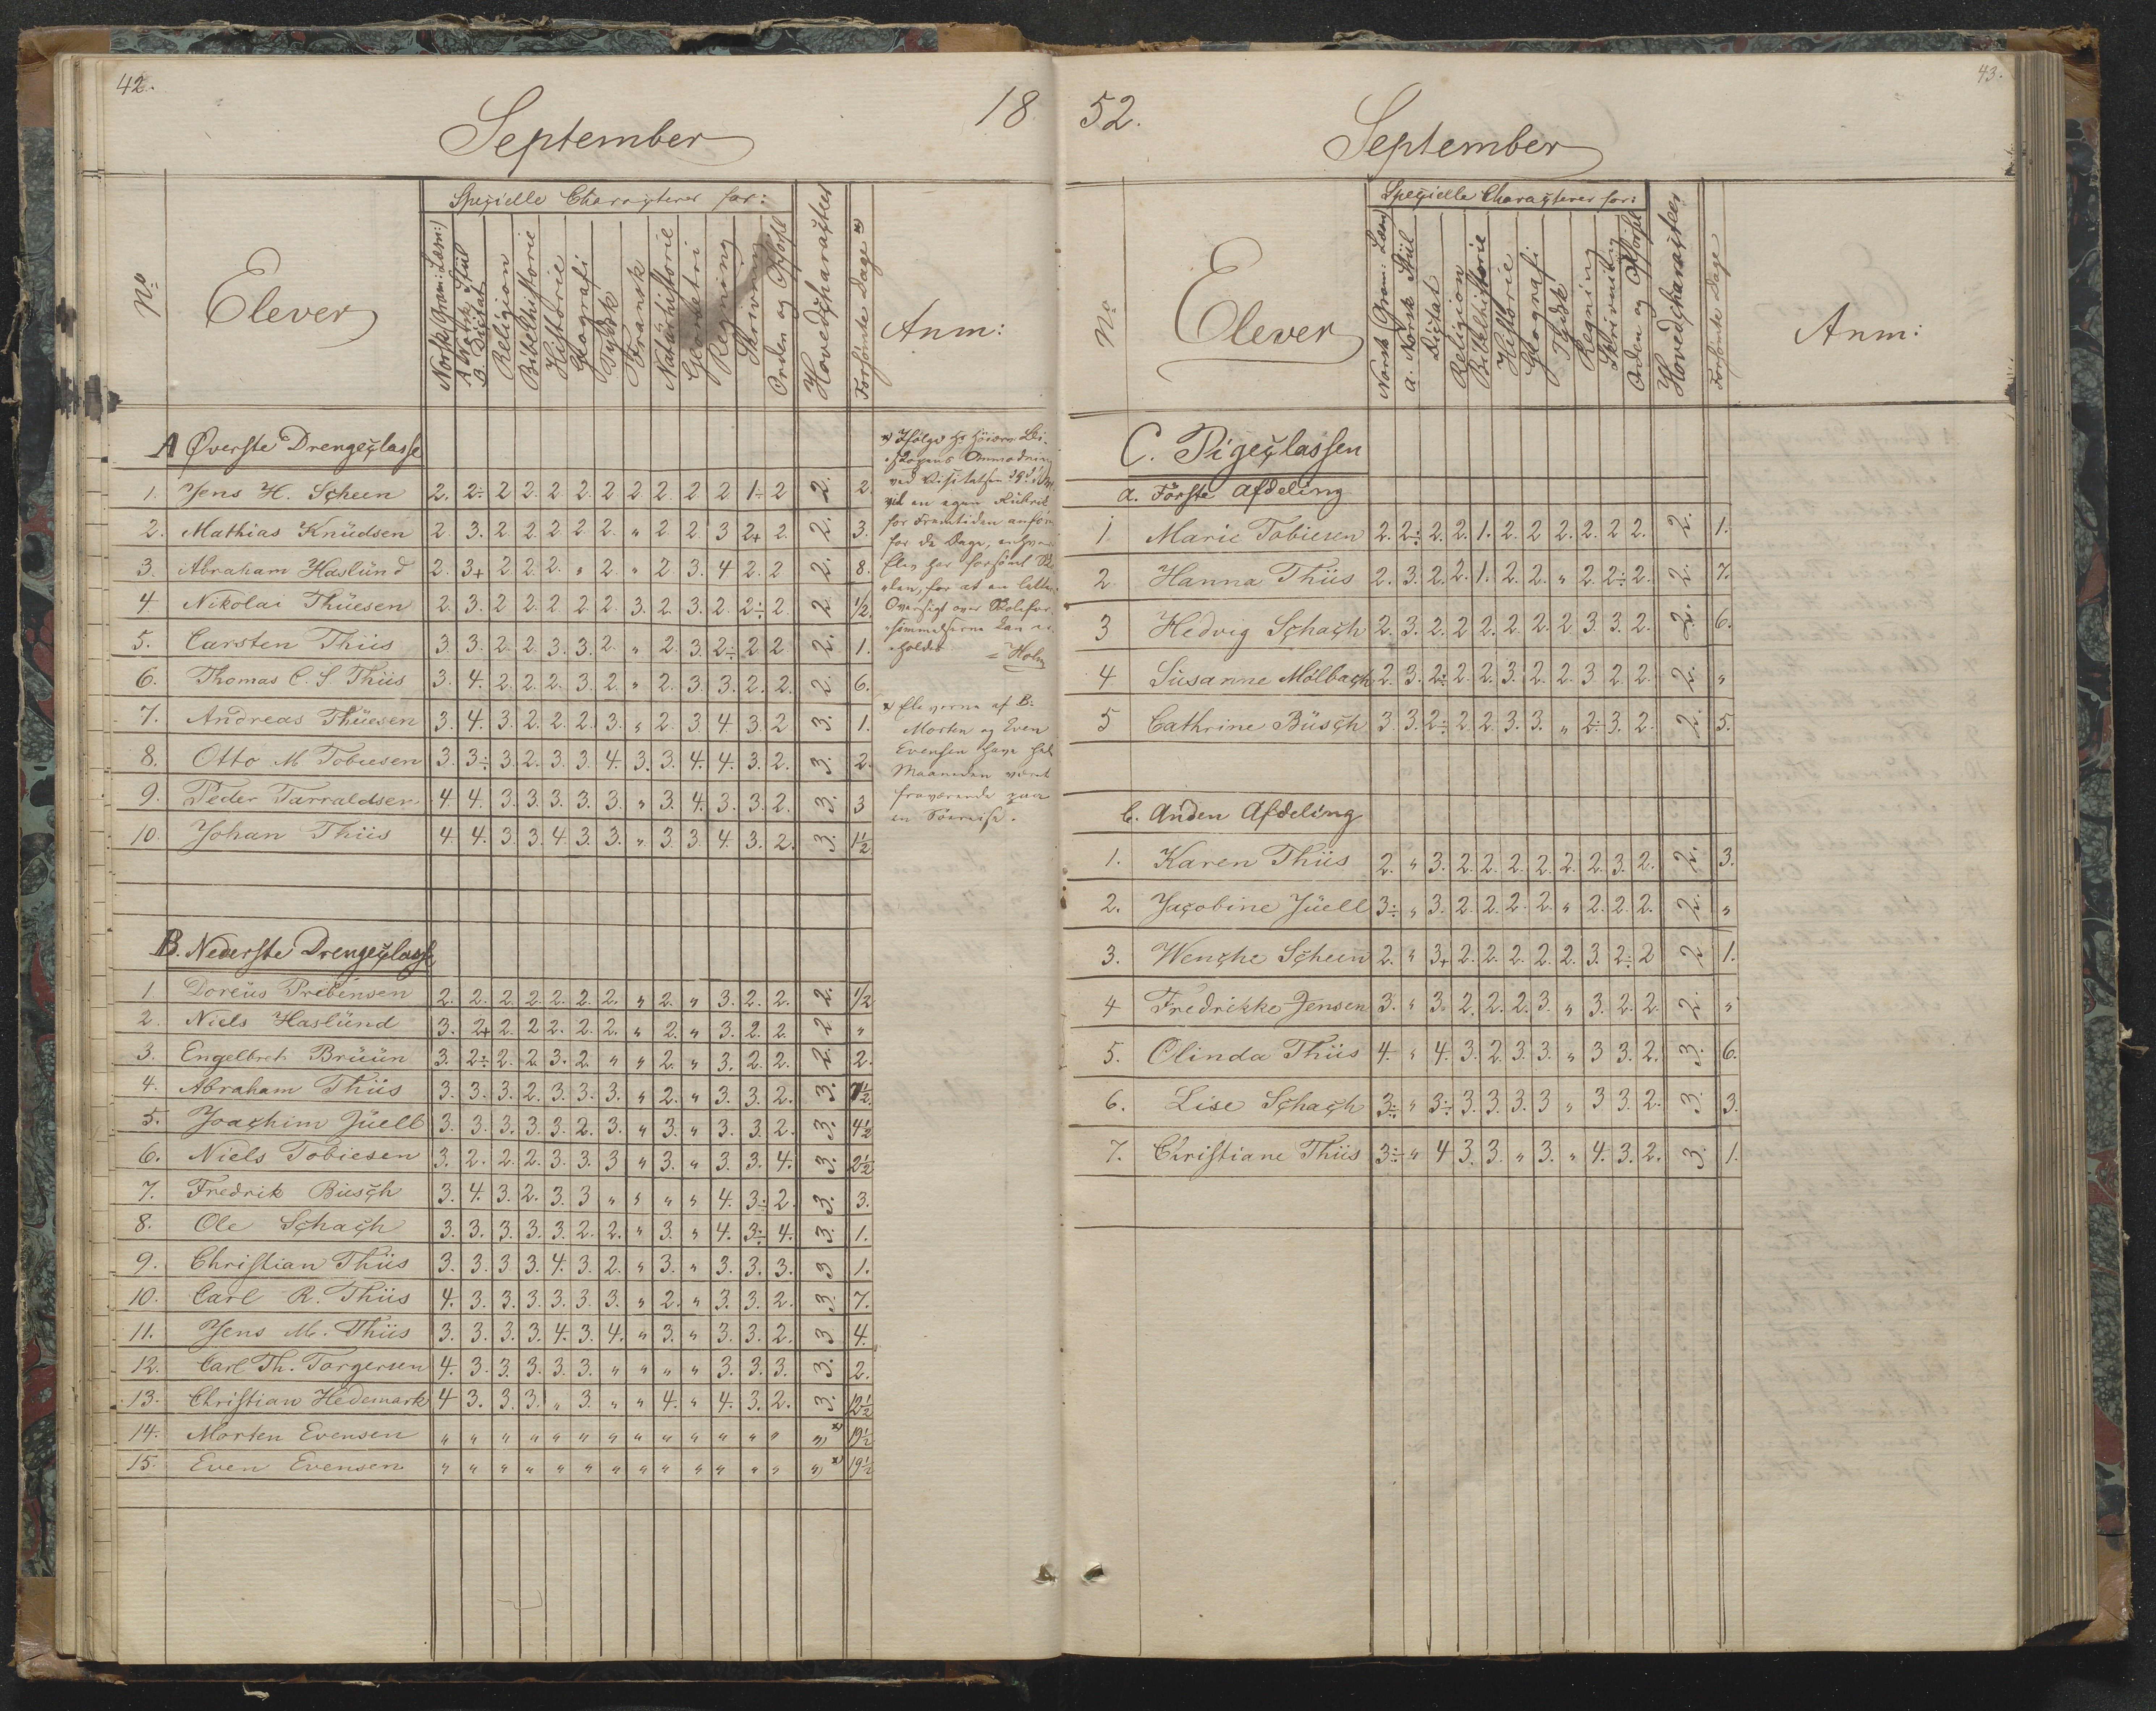 42.
September
18
No
Elever
Specielle Characterer for:
Norsk Gram: Læsn:
A Norsk Stiil
B. Dictat
Religion
Bibelhistorie
Historie
Geografi
Tydsk
Fransk
Naturhistorie
Geometri
Regning
Skrivning
Orden og Opførsl
Hovedcharacteer
Forsømte Dage x)
Anm:
A Øverste Drengeclasse
1. Jens H. Scheen 2. 2÷ 2 2. 2. 2. 2 2 2. 2 2 1÷ 2 2. 2.
2. Mathias Knüdsen 2. 3. 2. 2. 2. 2. 2. " 2 2. 3 2+ 2. 2. 3.
3. Abraham Haslünd 2. 3+ 2. 2. 2. " 2. " 2 3. 4 2. 2 2. 8.
4 Nikolai Thüesen 2. 3. 2 2. 2. 2. 2. 3. 2. 3. 2. 2÷ 2. 2 1/2.
5. Carsten Thiis 3. 3. 2. 2. 3. 3. 2. " 2. 3. 2÷ 2. 2. 2. 1.
6. Thomas C. S. Thiis 3. 4. 2. 2. 2. 3. 2. " 2. 3. 3. 2. 2. 2. 6.
7. Andreas Thüesen 3. 4. 3. 2. 2. 2. 3. " 2. 3 4. 3. 2 3. 1.
8. Otto M Tobiesen 3. 3÷ 3. 2. 3. 3. 4. 3. 3. 4. 4. 3. 2. 3. 2.
9. Peder Tarraldsen 4. 4. 3. 3. 3. 3. 3. " 3. 4. 3. 3. 2. 3. 3
10. Johan Thiis 4. 4. 3. 3. 4. 3. 3. " 3. 3. 4. 3. 2. 3. 1 1/2
x) Ifølge Hr
ved Visitatsen
vil en egen Rubrik
for Fremtiden anfør
for de Dage, enhver
Elev har forsømt
len, for at en letter
Oversigt over Skolefor
sømmelserne kan er
holdes = Holm
x Eleverne af B:
Morten og Even
Evensen have hele
Maaneden været
fraværende paa
en Søereise.
B. Nederste Drengeclasse
1 Doreüs Prebensen 2. 2. 2. 2. 2. 2. 2. " 2. " 3. 2. 2. 2. 1/2
2. Niels Haslünd 3. 2+ 2. 2 2. 2. 2. " 2. " 3. 2. 2. 2. "
3. Engelbret Brüün 3. 2÷ 2. 2. 3. 2. " " 2. " 3. 2. 2. 2. 2.
4. Abraham Thiis 3. 3. 3. 2. 3. 3. 3. " 2. " 3. 3. 2. 3. 7 1/2.
5. Joachim Jüell 3. 3. 3. 3. 3. 2. 3. " 3. " 3. 3. 2. 3. 4 1/2
6. Niels Tobiesen 3. 2. 2. 2. 3. 3. 3 " 3. " 3. 3. 4. 3. 2 1/2
7. Fredrik Büsch 3. 4. 3. 2. 3. 3 " " " " 4. 3÷ 2. 3. 3.
8. Ole Schach 3. 3. 3. 3. 3. 2. 2. " 3. " 4. 3÷ 4. 3. 1.
9. Christian Thiis 3. 3. 3. 3. 4. 3. 2. " 3. " 3. 3. 3. 3 1.
10. Carl R. Thiis 4. 3. 3. 3. 3. 3. 3. " 2. " 3. 3. 2. 3. 7.
11. Jens M. Thiis 3. 3. 3. 3. 4. 3. 4. " 3. " 3. 3. 2. 3 4.
12. Carl Th. Torgersen 4. 3. 3. 3. 3. 3. " " " " 3. 3. 3. 3. 2.
13. Christian Hedemark 4 3. 3. 3. " 3. " " 4. " 4. 3. 2. 3. 12 1/2
14. Morten Evensen " " " " " " " " " " " " " " x) 19 1/2
15. Even Evensen " " " " " " " " " " " " " " x) 19 1/2
43.
52.
September
No
Elever
Specielle Characterer for:
Norsk Gram: Læsn
a. Norsk Stiil
Dictat
Religion
Bibelhistorie
Historie
Geografi
Tydsk
Regning
Skrivning
Orden og Opførsl
Hovedcharacteer
Forsømte Dage
Anm:
C. Pigeclassen
a. Første Afdeling
1 Marie Tobiesen 2. 2÷ 2. 2. 1. 2. 2 2. 2. 2 2. 2. 1.
2 Hanna Thiis 2. 3. 2. 2. 1. 2. 2. " 2. 2÷ 2. 2. 7.
3 Hedvig Schach 2. 3. 2. 2 2. 2. 2. 2 3 3. 2. 2. 6.
4 Süsanne Mølbach 2. 3. 2÷ 2. 2. 3. 2. 2. 3 2. 2. 2. "
5 Cathrine Büsch 3 3. 2÷ 2 2. 3. 3. " 2÷ 3. 2. 2. 5.
b. Anden Afdeling
1. Karen Thiis 2. " 3. 2. 2. 2. 2. 2. 2. 3. 2. 2. 3.
2. Jacobine Jüell 3÷ " 3. 2. 2. 2. 2. " 2. 2. 2. 2. "
3. Wenche Scheen 2. " 3+ 2. 2. 2. 2. 2. 3. 2÷ 2 2 1.
4 Fredrikke Jensen 3. " 3. 2. 2. 2. 3. " 3. 2. 2. 2. "
5. Olinda Thiis 4. " 4. 3. 2. 3. 3. " 3 3. 2. 3. 6.
6. Lise Schach 3÷ " 3÷ 3. 3. 3. 3 " 3 3. 2. 3. 3.
7. Christiane Thiis 3÷ " 4 3. 3. " 3. " 4. 3. 2. 3. 1.